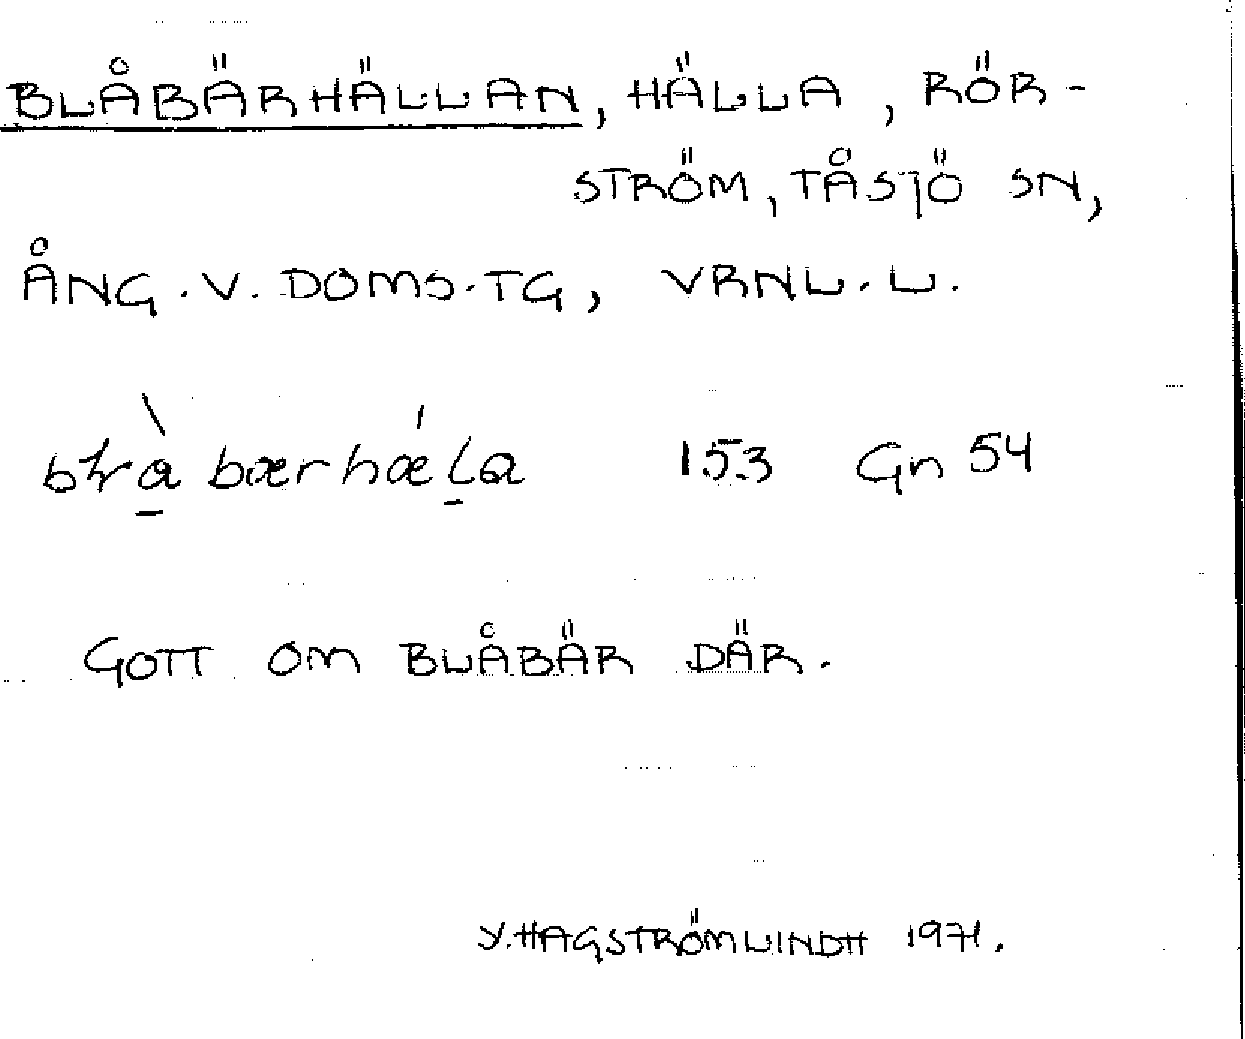 BLÅBÄRHÄLLAN, HÄLLA, RÖR-
STRÖM, TÅSJÖ SN,
ÅNG. V. DOMS. TG, VRNL. L.
153 Gn 54
GOTT OM BLÅBÄR DÄR.
Y. HAGSTRÖMLINDH 1971.